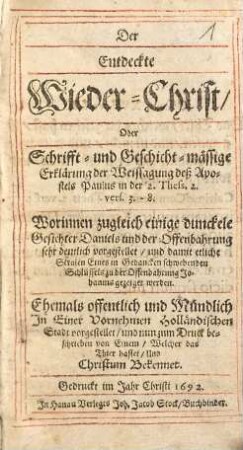 1
Der
Entdeckte
Wieder-Christ/
Oder
Schrifft- und Geschicht-mässige
Erklärung der Weissagung deß Apo-
stels Paulus in der 2. Thess. 2.
vers. 3. - 8.
Worinnen zugleich einige dunckele
Gesichter Daniels und der Offenbahrung
sehr deutlich vorgestellet / und damit etliche
Stralen Eines in Gedancken schwebenden
Schlüssels zu der Offenbahrung Jo-
hannis gezeiget werden.
Ehemals offentlich und Mündlich
In Einer Vornehmen Holländischen
Stadt vorgestellet / und nun zum Druck be-
schrieben von Einem / Welcher das
Thier hasset / Und
Christum Bekennet.
Gedruckt im Jahr Christi 1692.
In Hanau Verlegts Joh. Jacob Stock / Buchbinder.